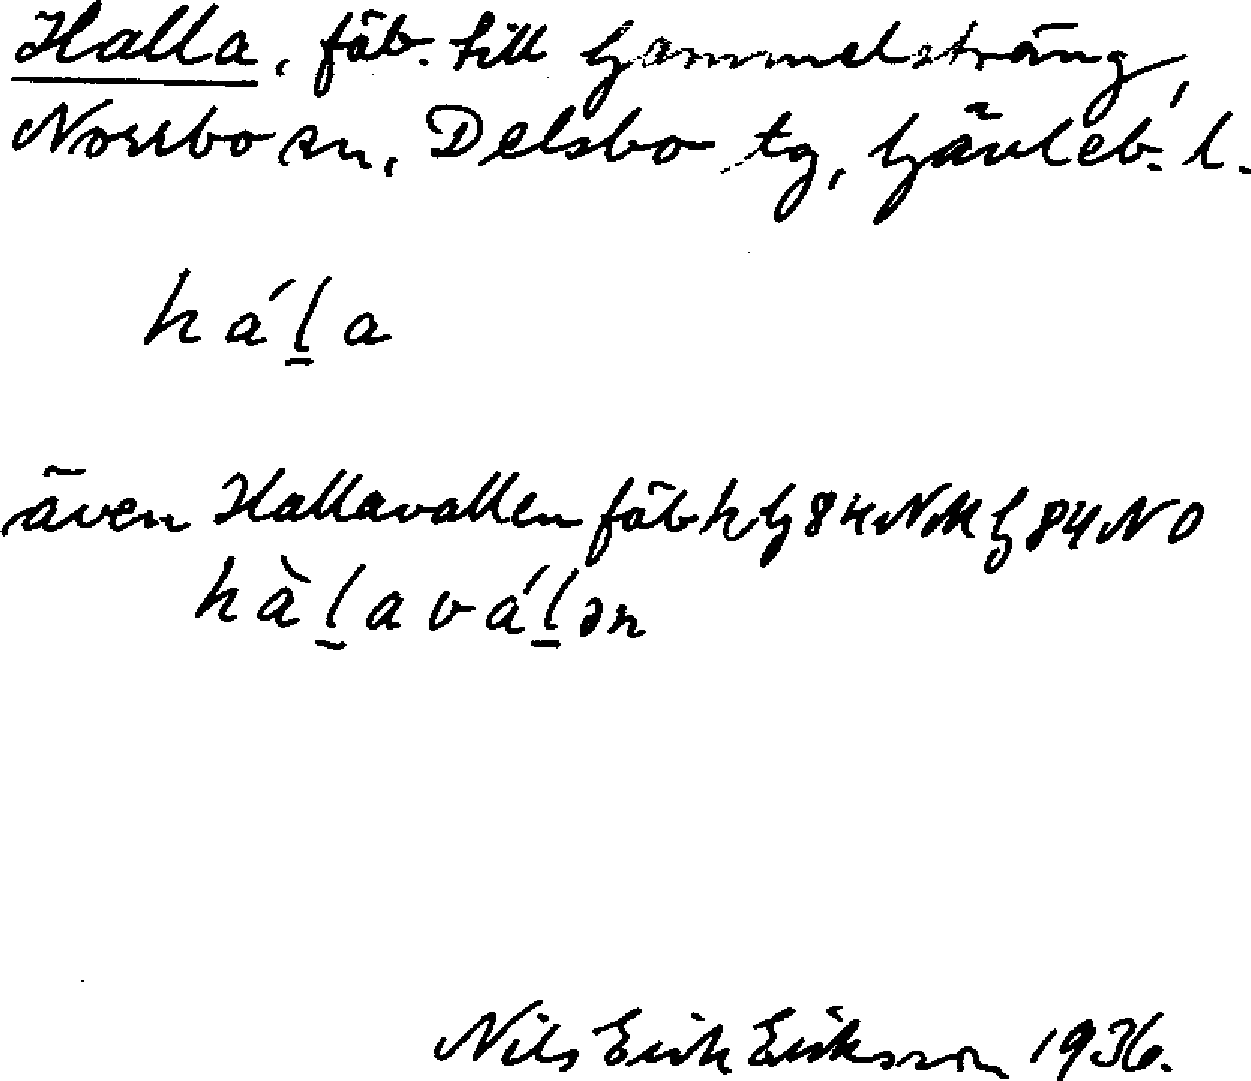 Halla, fäb. till Gammelsträng,
Norrbo sn, Delsbo tg, Gävleb. l.
há l̲ a
även Hallavallen fäb k G 84 NM G 84 NO
hà l̲ a v á l̲ ən
Nils Erik Eriksson 1936.